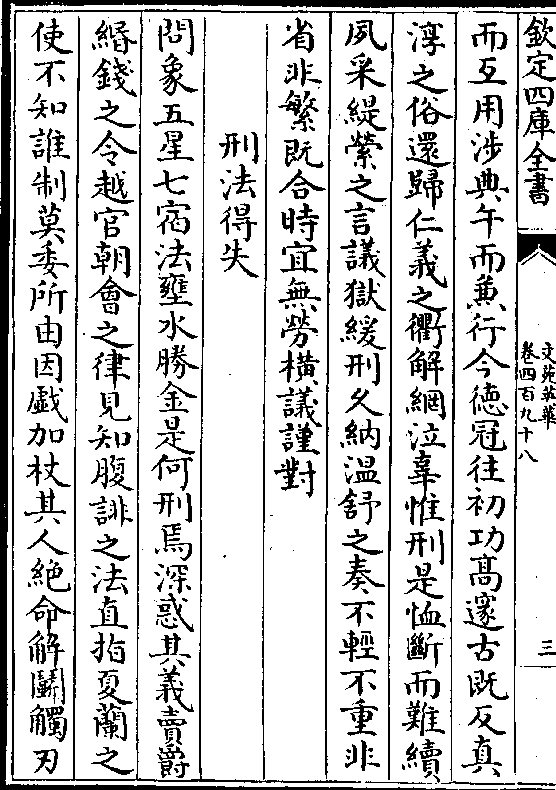 欽定四庫全書
文苑英華
卷四百九十八
三
而互用涉典午而兼行今徳冠往初功髙邃古既反真
淳之俗還歸仁義之衢解網泣辜惟刑是恤斷而難續
夙采緹縈之言議獄緩刑久納溫舒之奏不輕不重非
省非繁既合時宜無勞橫議謹對
刑法得失
問象五星七宿法壅水勝金是何刑焉深惑其義賣爵
緡錢之令越官朝會之律見知腹誹之法直指夏蘭之
使不知誰制莫委所由因戲加杖其人絶命解鬬觸刃